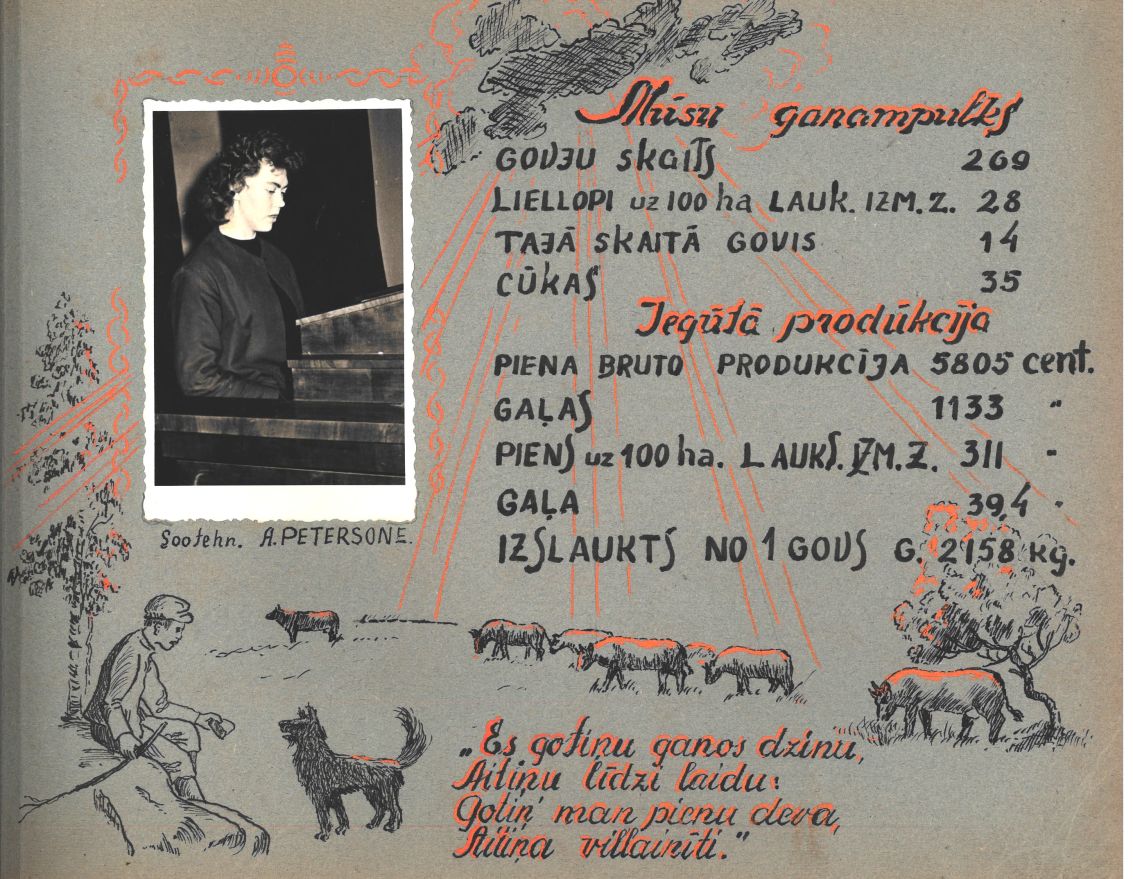 Mūsu ganampulks
GOVJU SKAITS 269
LIELLOPI uz 100 ha LAUK. IZM. Z. 28
TAJĀ SKAITĀ GOVIS 14
CŪKAS 35
Iegūtā prodūkcija
PIENA BRUTO PRODUKCĪJA 5805 cent.
GAĻAS 1133 "
PIENS uz 100 ha. LAUKS. IZM. Z. 311 "
GAĻA 39,4 "
IZSLAUKTS NO 1 GOVS G. 2158 kg.
Sootehn. A. PETERSONE.
„Es gotiņu ganos dzinu,
Aitiņu līdzi laidu:
Gotiņ' man pienu deva,
Aitiņa villainīti."